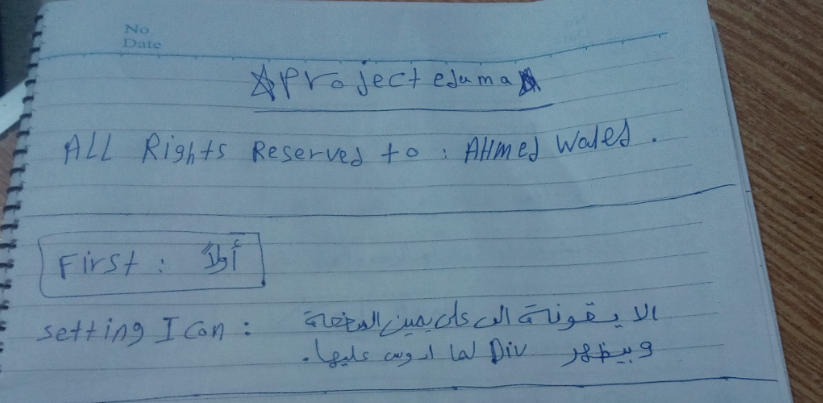 No
Date
☆Project eduma☆
ALL Rights Reserved to : AHmed Waled .
First : أولاً
setting Icon : الايقونة الى على يمين الصفحة
وبيظهر Div لما ادوس عليها .